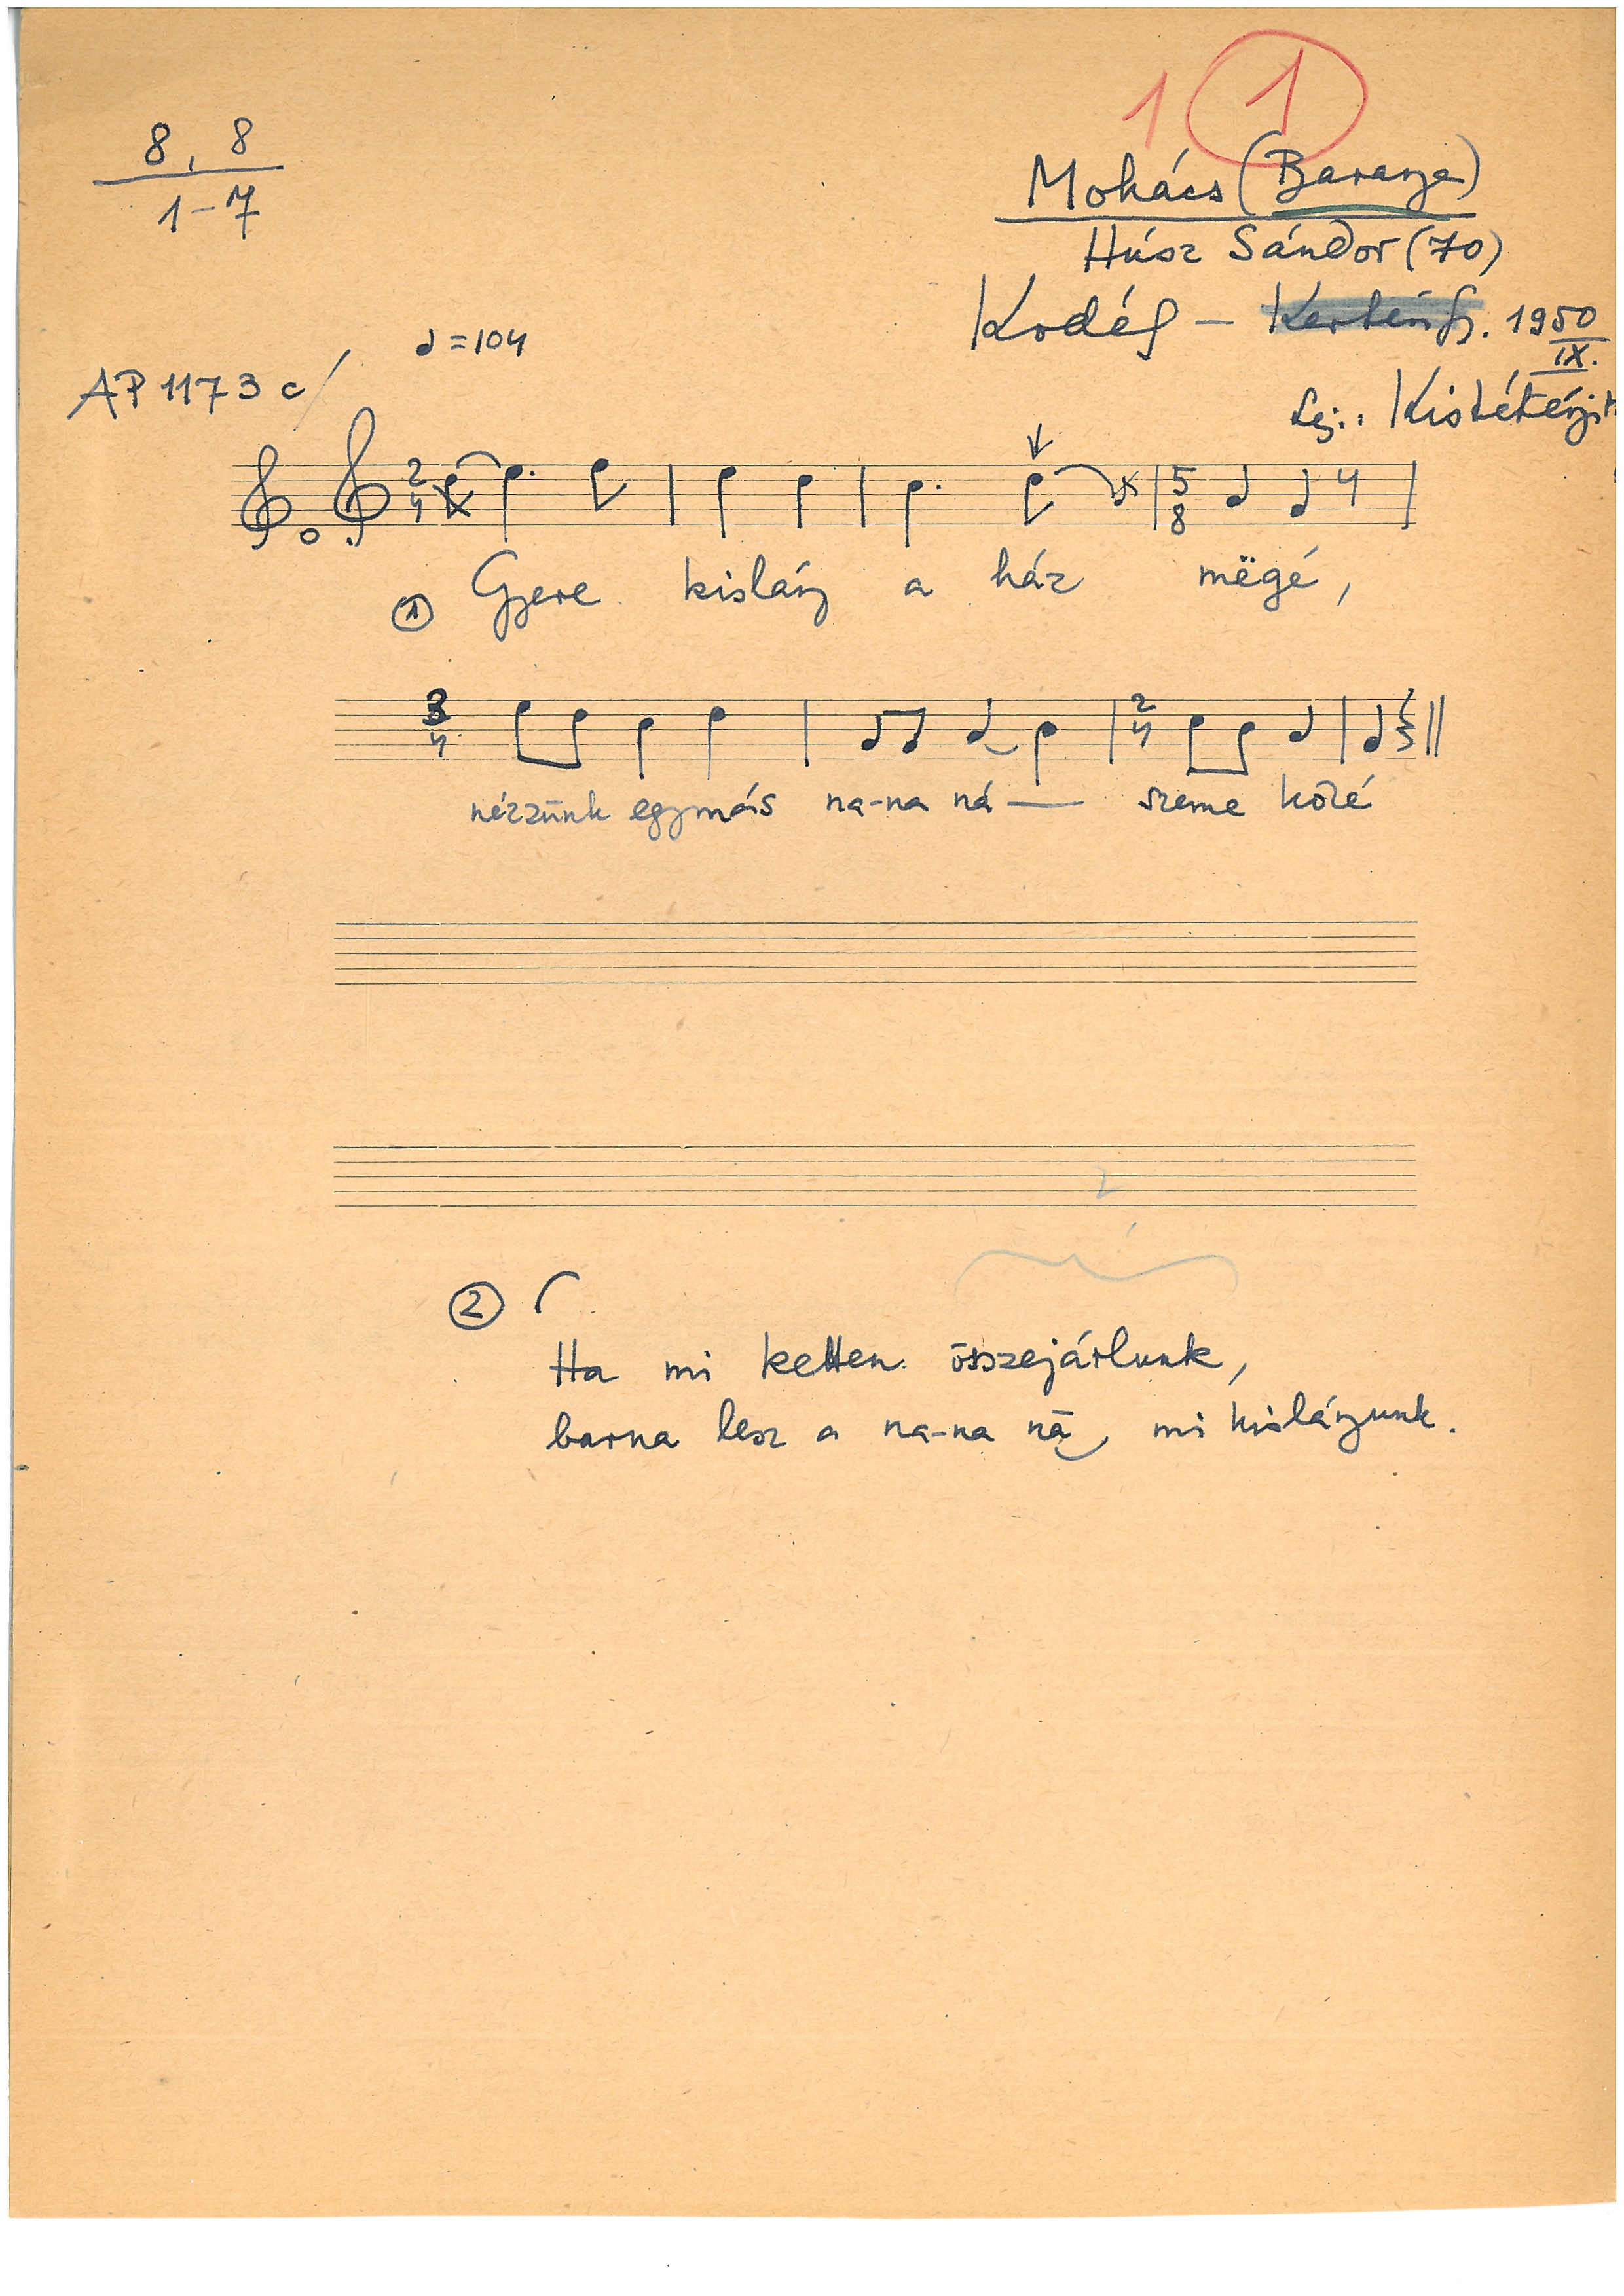 1 1
8, 8
1-7
Mohács (Baranya)
Húsz Sándor (70)
1950
IX.
♩=104
AP 1173 c/
Lej.:
2
4
5
8
① Gyere kislány a ház mëgé,
3
4
2
4
nézzünk egymás na-na ná— szeme közé
②
Ha mi ketten összejárlunk,
barna lesz a na-na ná, mi kislányunk.